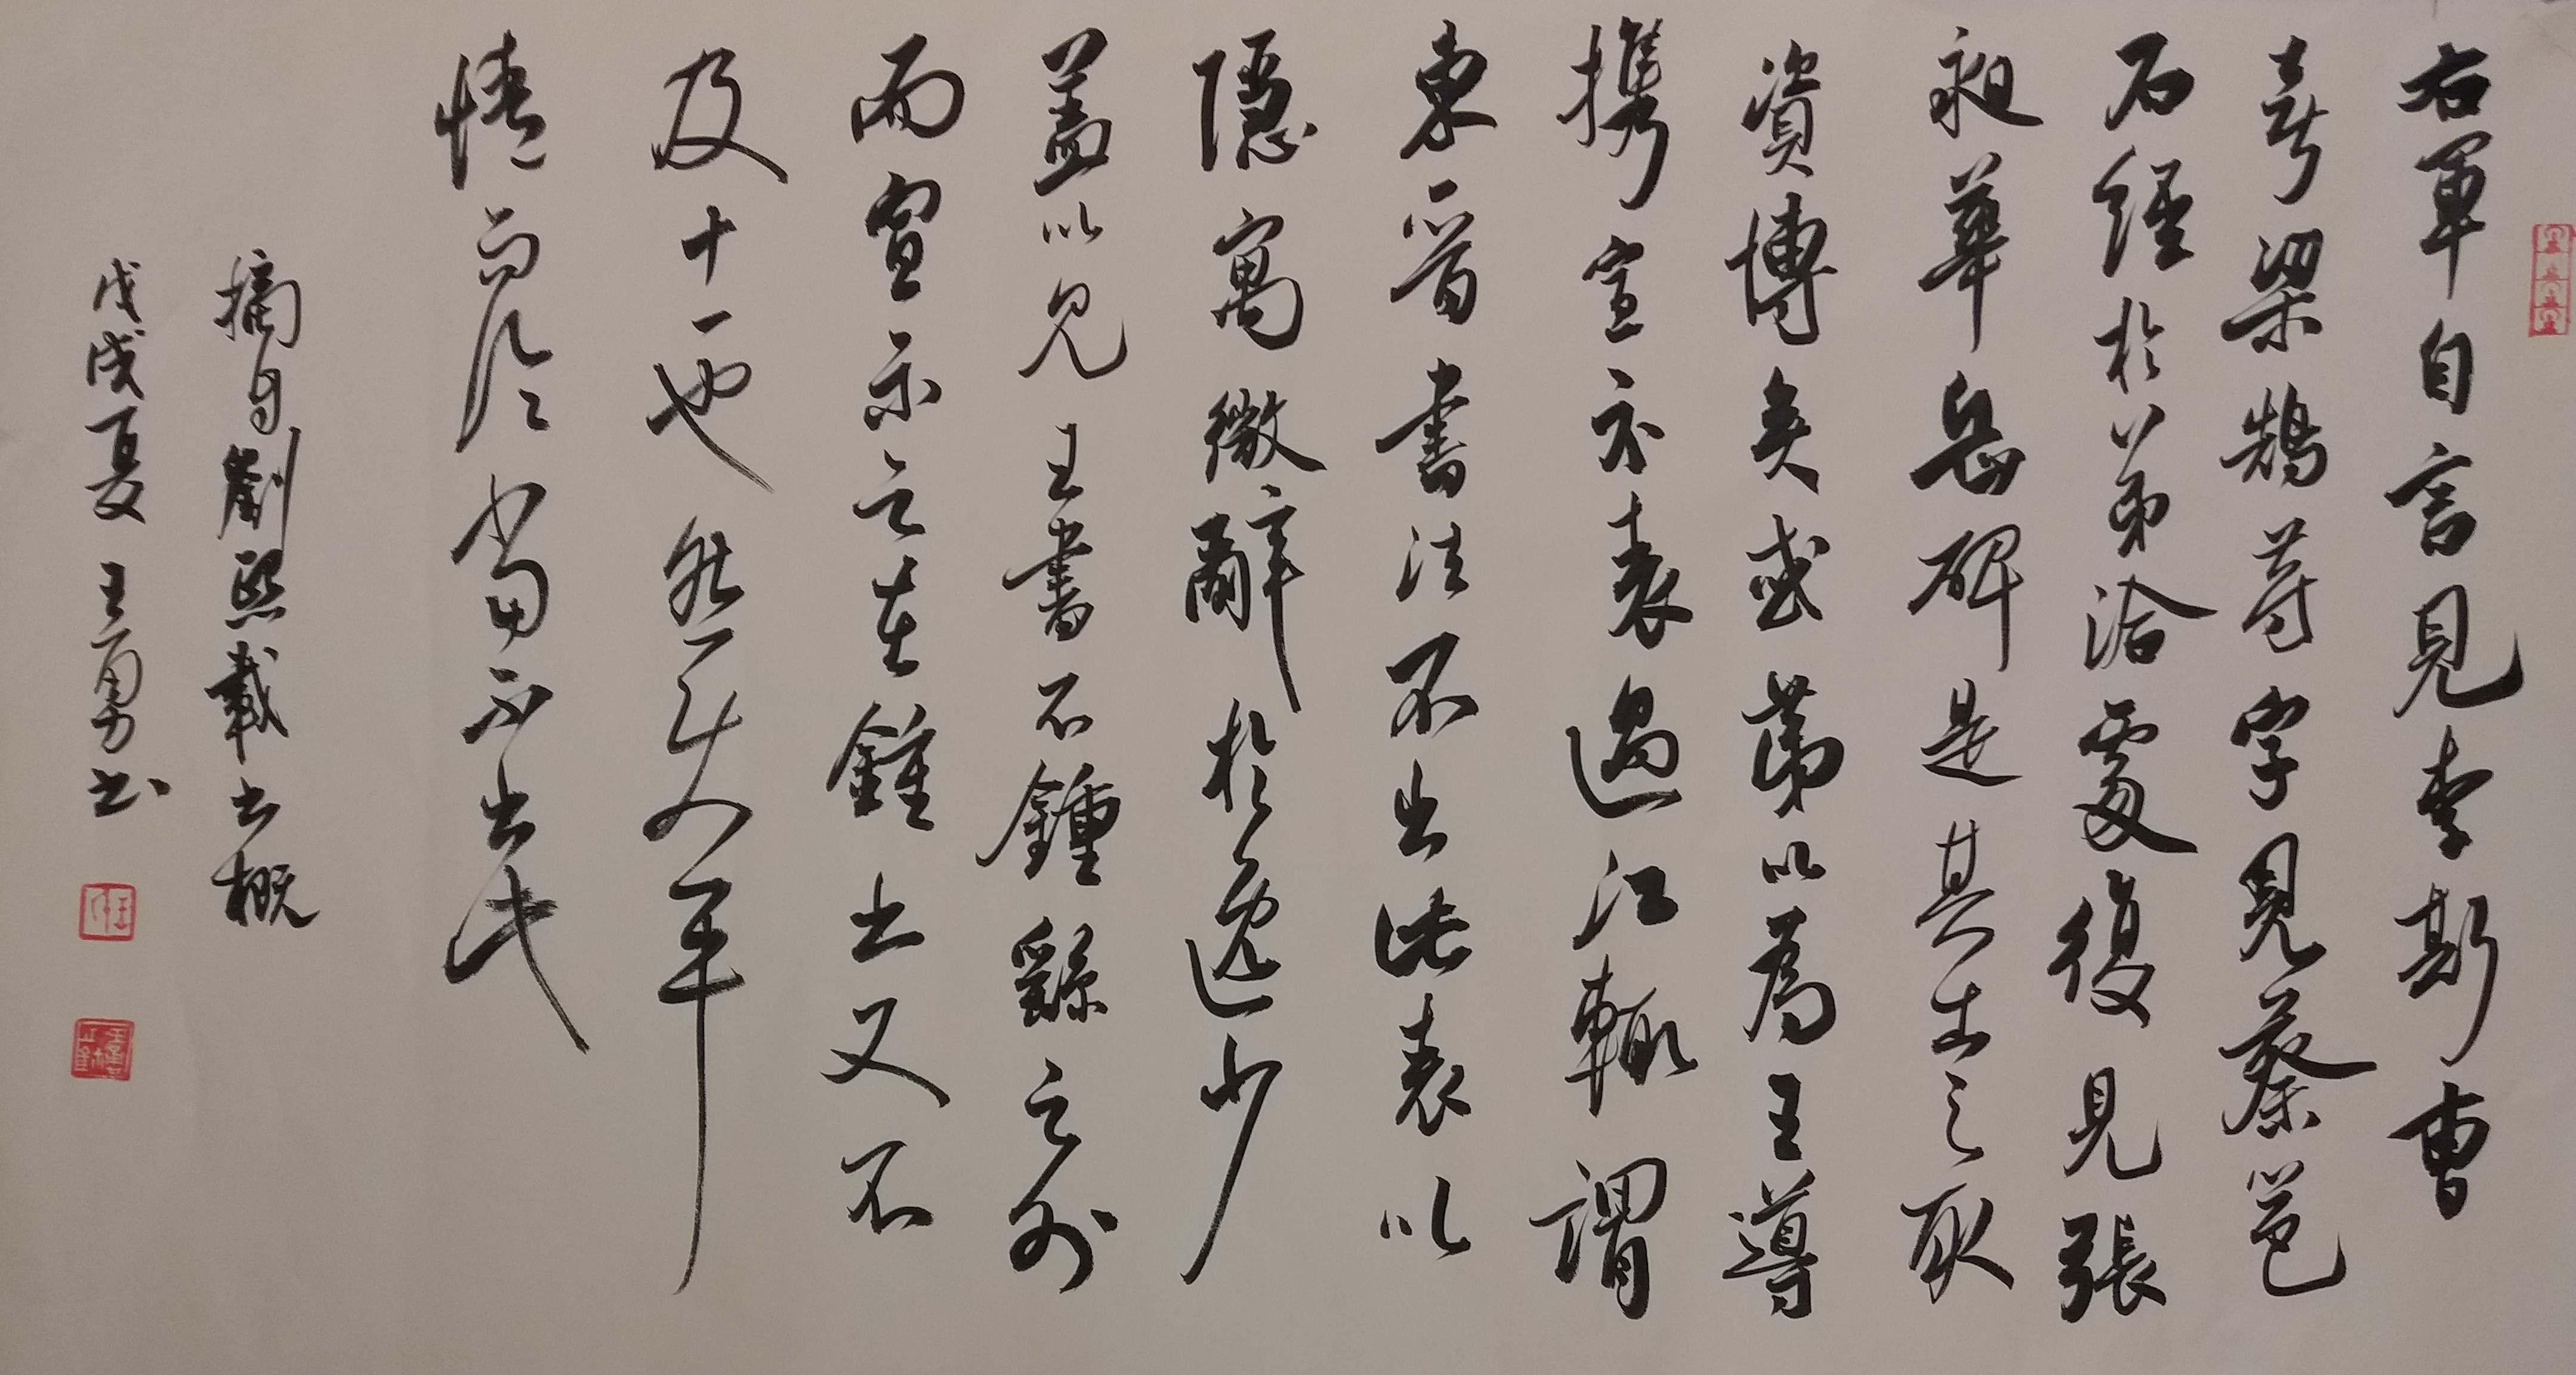 右軍自言見李斯曹
喜梁鵠等字見蔡邕
石經於從弟洽處復見張
昶華岳碑是其書之取
資博矣或第以為王導
攜宣示表過江輒謂
東晉書法不出此表以
隱寓微辭於逸少
蓋以見王書不鍾繇之外
而宣示之在鍾書又不
及十一也然使平
情而論當不出此
摘自劉熙載書概
戊戌夏 王勇書